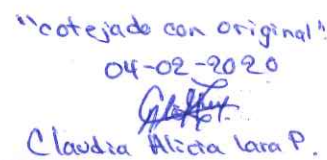 "cotejado con original"
04-02-2020
Claudia Alicia Lara P.